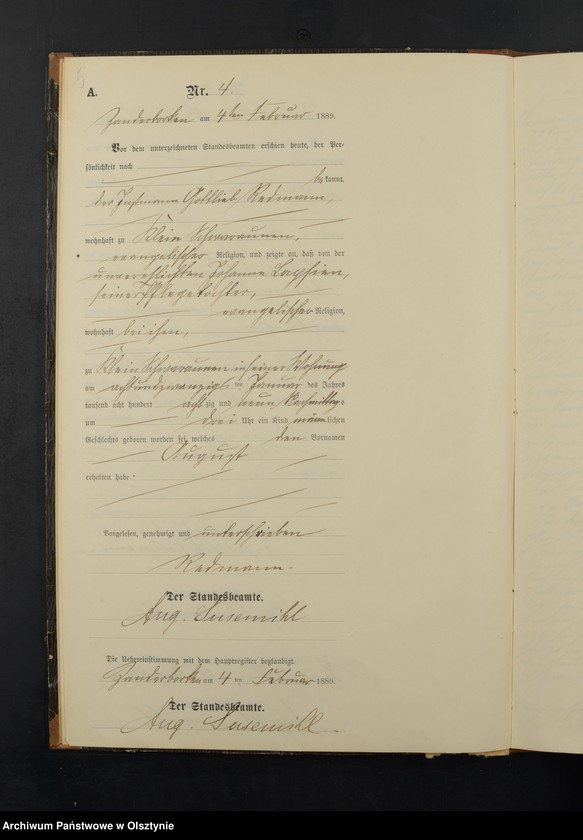 5
A. Nr. 4.
Zanderborken am 4ten Februar 1889.
Vor dem unterzeichneten Standesbeamten erschien heute, der Per-
sönlichkeit nach
bekannt,
der Instmann Gottlieb Redmann,
wohnhaft zu Klein Schwaraunen,
evangelischer Religion, und zeigte an, daß von der
unverehlichten Johanne Lapsien,
seiner Pflegetochter,
evangelischer Religion,
wohnhaft bei ihm,
zu Klein Schwaraunen in seiner Wohnung
am achtundzwanzigsten Januar des Jahres
tausend acht hundert achtzig und neun Nachmittags
um drei Uhr ein Kind männlichen
Geschlechts geboren worden sei, welches den Vornamen
August
erhalten habe.
Vorgelesen, genehmigt und unterschrieben
Redmann.
Der Standesbeamte.
Aug. Susemihl
Die Uebereinstimmung mit dem Hauptregister beglaubigt.
Zanderborken am 4 ten Februar 1889.
Der Standesbeamte.
Aug. Susemihl.
Archiwum Państwowe w Olsztynie